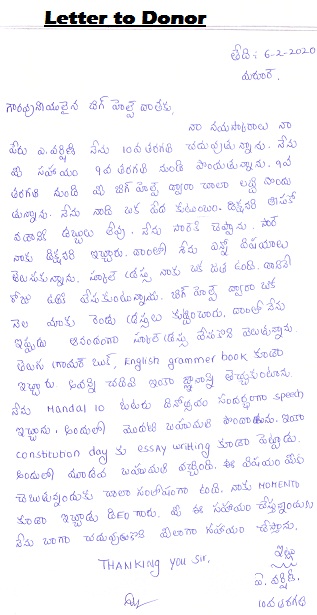 Letter to Donor
తేది: 6-2-2020
గౌరవనీయులైన బిగ్ హెల్ప్ వారికు,
నా నమస్కారాలు నా
పేరు వి. వర్షిణి నేను 10వ తరగతి చదువుతున్నాను. నేను
ఈ సహాయం 9వ తరగతి నుండి పొందుతున్నాను. 9వ
తరగతి నుండి ఈ బిగ్ హెల్ప్ ద్వారా చాలా లబ్ధి పొందు
తున్నాను. నేను నాది ఒక పేద కుటుంబం. డిక్షనరి
డబ్బులు లేవు. నేను సార్‌కి చెప్పాను. సార్
నాకు డిక్షనరి ఇచ్చారు. దానితో నేను ఎన్నో విషయాలు
తెలుసుకున్నాను. స్కూల్ డ్రస్సు నాకు ఒక జత ఉంది. దానినే
రోజు ఉతికి వేసుకుంటున్నాను. బిగ్ హెల్ప్ ద్వారా ఒక
నెల మాకు రెండు డ్రస్సులు కుట్టించారు. దాంతో నేను
ఇప్పుడు ఆనందంగా స్కూల్ డ్రస్ వేసుకొని వెలుతున్నాను.
తెలుగు గ్రామర్ బుక్, English grammer book కూడా
ఇచ్చారు. అవన్ని చదివి ఇంకా జ్ఞానాన్ని తెచ్చుకుంటాను
నేను Mandal lo ఓటరు దినోత్సవం సందర్భంగా speech
ఇచ్చాను. అందులో మొదటి బహుమతి పొందాను. ఇంకా
constitution day కు essay writting కూడా పెట్టారు.
అందులో మూడవ బహుమతి వచ్చింది. ఈ విషయం మీకు
చెబుతున్నందుకు చాలా సంతోషంగా ఉంది. నాకు MOMENTO
కూడా ఇచ్చాడు DEO గారు. మీ ఈ సహాయం చేస్తున్నందుకు
నేను బాగా చదువుతుకొని ఇలాగా సహాయం చేస్తాను.
THANKING YOU SIR.
ఇట్లు
వి. వర్షిణి
10వ తరగతి